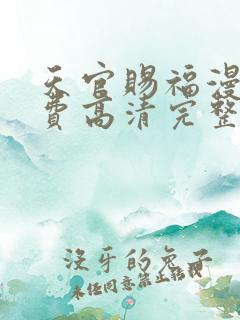 天官赐福漫
费高清完整
没牙的兔子
未经同意禁止转载